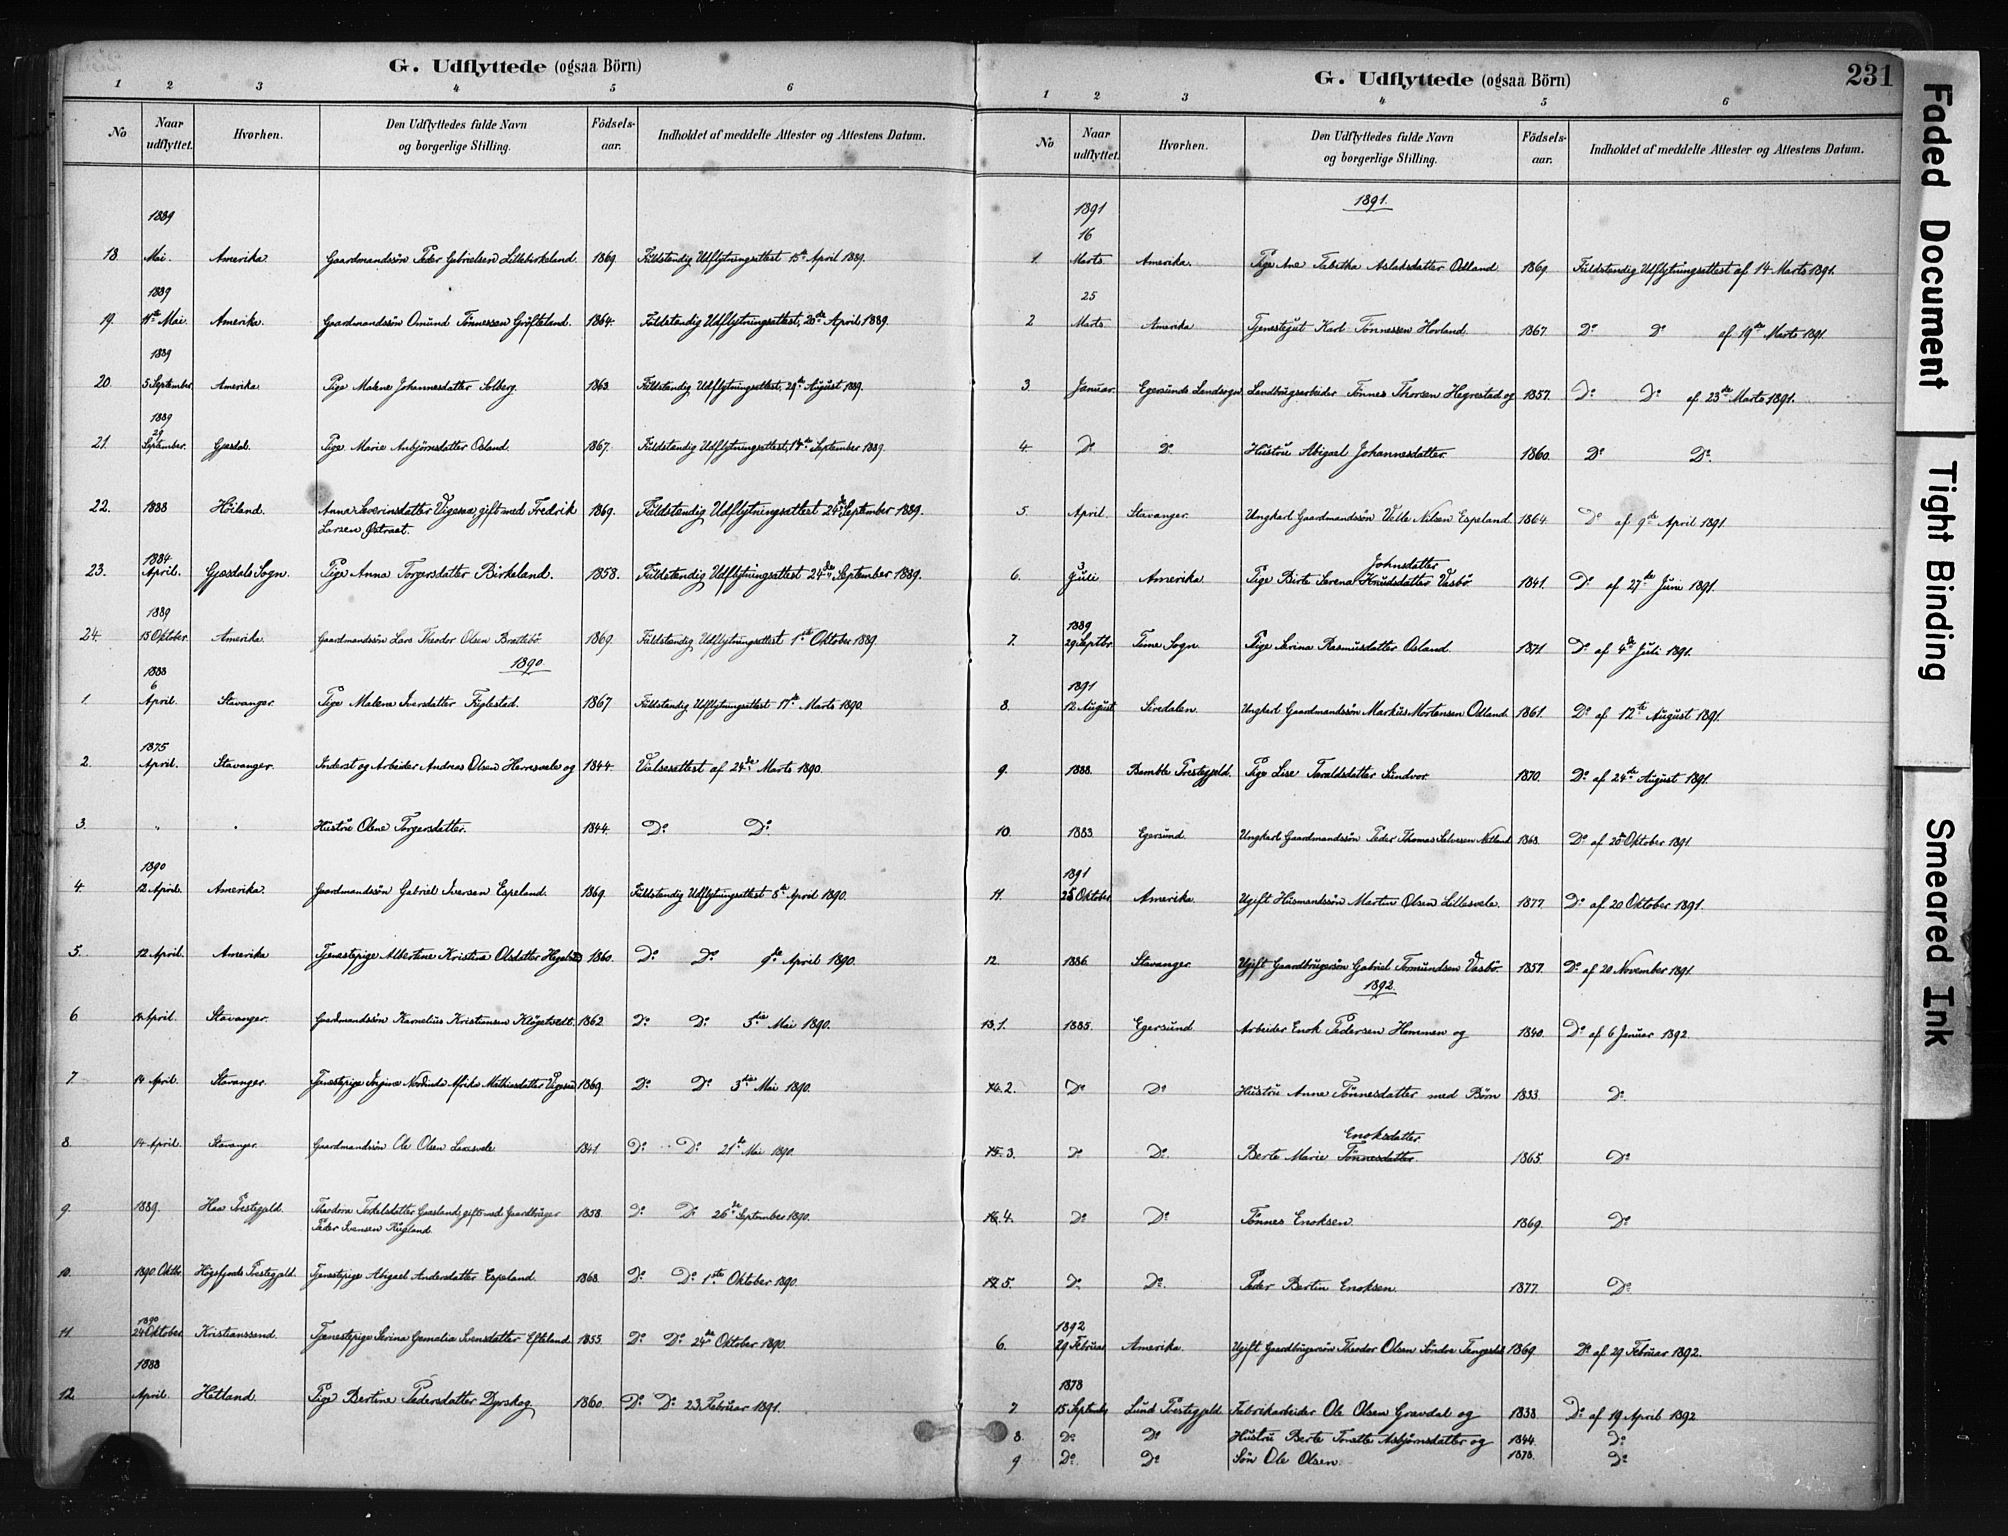 G. Udflyttede (ogsaa Börn)
1 2 3 4 5 6
No Naar udflyttet. Hvorhen. Den Udflyttedes fulde Navn og borgerlige Stilling. Födsels-aar. Indholdet af meddelte Attester og Attestens Datum.
1889
18. Mai. Amerika. Gaardmandssön Peder Gabrielsen Lillebirkeland. 1869 Fuldstendig Udflytningsattest 15de April 1889.
1889
19. 11te Mai. Amerika. Gaardmandssön Omund Tönnessen Gröfteland. 1864. Fuldstendig Udflytningsattest, 26de April 1889.
1889
20. 5 September. Amerika. Pige Malene Johannesdatter Solberg. 1863. Fuldstendig Udflytningsattest, 29de August 1889.
1889
29
21. September. Gjesdal. Pige Marie Asbjörnsdatter Osland. 1867. Fuldstendig Udflytningsattest, 14de September 1889.
22. 1888 Höiland. Anna Severinsdatter Vigesaa, gift med Fredrik 1869. Fuldstendig Udflytningsattest 24de September 1889.
Larsen Östraat.
1884
23. April. Gjesdals Sogn. Pige Anna Torgersdatter Birkeland. 1858. Fuldstendig Udflytningsattest 24de September 1889.
1889
24. 15 Oktober. Amerika. Gaardmandssön Lars Theodor Olsen Brattebö. 1869. Fuldstendig Udflytningsattest 1ste Oktober 1889.
1890
1888
6
1. April. Stavanger. Pige Malena Iversdatter Fuglestad. 1867 Fuldstendig Udflytningsattest 17de Marts 1890.
1875
2. April. Stavanger. Inderst og Arbeider Andreas Olsen Herresvele og 1844. Vielsesattest af 24de Marts 1890.
3. " " Hustru Olene Torgersdatter. 1844. Do Do
1890
4. 12 April. Amerika. Gaardmandssön Gabriel Iversen Espeland. 1869. Fuldstendig Udflytningsattest 8de April 1890.
5. 12 April. Amerika Tjenestepige Albertine Kristina Olsdatter 1860. Do Do 9de April 1890.
6. 14 April. Stavanger. Gaardmandssön Kornelius Kristiansen Klögetvedt. 1862. Do Do 5te Mai 1890.
7 14 April. Stavanger. Tjenestepige Mathiasdatter Vigesaa 1869. Do Do 3die Mai 1890.
8. 14 April. Stavanger. Gaardmandssön Ole Olsen Laxesvele 1841. Do Do 21de Mai 1890.
9 1889. Haa Prestegjeld. Theodora Gaasland, gift med Gaardbruger 1858. Do Do 26de September 1890.
Peder Svensen
10. 1890. Oktbr. Högsfjords Prestegjeld. Tjenestepige Abigael Andersdatter Espeland. 1868. Do Do 1ste Oktober 1890.
1890
11. 24 Oktober. Kristianssand. Tjenestepige Serina Gemalia Svensdatter Efteland. 1855. Do Do 24de Oktober 1890.
1888
12. April. Hetland. Pige Bertine Pedersdatter Dyrskog 1860. Do Do 23 Februar 1891.
G. Udflyttede (ogsaa Börn) 231
1 2 3 4 5 6
No Naar udflyttet. Hvorhen. Den Udflyttedes fulde Navn og borgerlige Stilling. Födsels-aar. Indholdet af meddelte Attester og Attestens Datum.
1891 1891.
16
1. Marts Amerika. Pige Ane Tabitha Aslaksdatter Odland. 1869. Fuldstendig Udflytningsattest af 14 Marts 1891.
25
2 Marts Amerika Tjenestegut Karl Tönnessen Hovland. 1867. Do Do af 19de Marts 1891.
3 Januar. Egersunds Landsogn Landbrugsarbeider Tönnes Thorsen Hegrestad og 1857. Do Do af 23de Marts 1891.
4. Do Do Hustru Abigael Johannesdatter. 1860. Do Do
5 April. Stavanger. Ungkarl Gaardmandssön Velle Nilsen Espeland. 1864. Do af 9de April 1891.
3 Johnsdatter
6. Juli Amerika Pige Birte Serena Knudsdatter Vasbö. 1841. Do af 27de Juni 1891.
1889
7. 29 Septbr. Time Sogn. Pige Serina Rasmusdatter Osland. 1871 Do af 4de Juli 1891.
1891
8. 12 August. Siredalen. Ungkarl Gaardmandssön Markus Mortensen Odland. 1861. Do af 12te August 1891.
9. 1888. Bamble Prestegjeld. Pige Lise Taraldsdatter Sundvor. 1870. Do af 24de August 1891.
10. 1883. Egersund. Ungkarl Gaardmandssön Peder Thomas Salvesen Netland 1868. Do af 20de Oktober 1891
1891
11. 25 Oktober Amerika. Ugift Husmandssön Martin Olsen Lillesvele. 1877 Do af 20 Oktober 1891.
12. 1886. Stavanger. Ugift Gaardbrugersön Gabriel Tormundsen Vasbö. 1857. Do af 20 November 1891.
1892.
13. 1. 1885. Egersund Arbeider Enok Pedersen Hommen og 1840. Do af 6 Januar 1892
14. 2. Do Do Hustru Anne Tönnesdatter med Börn 1833. Do
Enoksdatter
15. 3. Do Do Berte Marie Tönnesdatter. 1865. Do
16. 4. Do Do Tönnes Enoksen. 1869. Do
17. 5. Do Do Peder Bertin Enoksen. 1877. Do
1892
6. 29 Februar Amerika. Ugift Gaardbrugersön Theodor Olsen Söndre 1869. Do af 29 Februar 1892.
1878
7. 15 September Lund Prestegjeld. Fabrikarbeider Ole Olsen Gravdal og 1838. Do af 19 April 1892
8. Do Do Hustru Berte Tonette Asbjörnsdatter og 1844. Do
9 Do Do Sön Ole Olsen. 1878. Do
Faded Document
Tight Binding
Smeared Ink